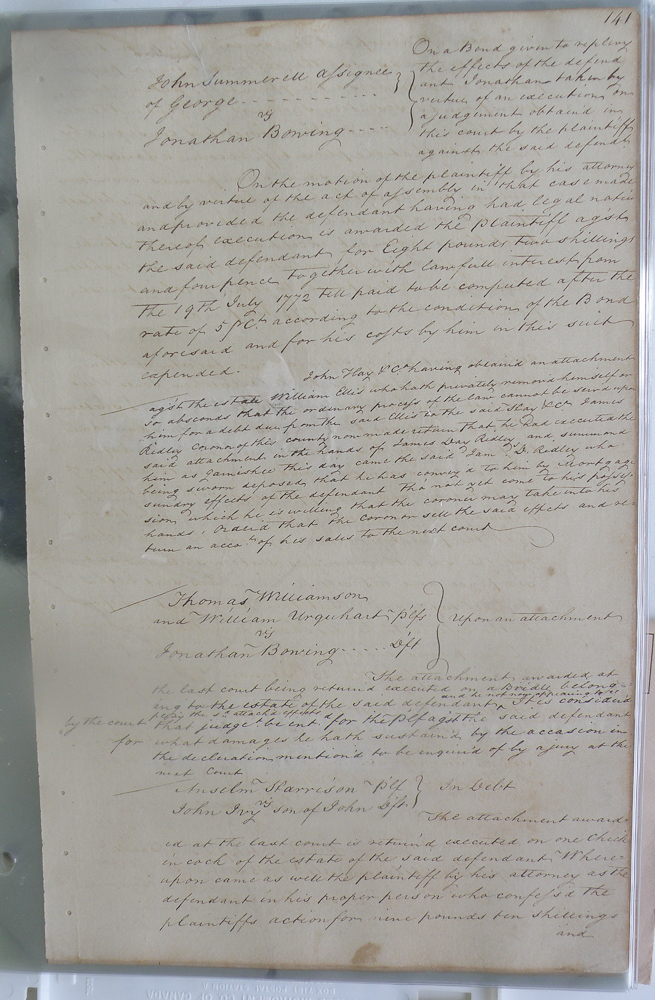 141
John Summerell assignee
of George - - - - - - - - - - -
vs
Jonathan Bowing - - - -
On a Bond given to replevy
the effects of the defend
ant Jonathan taken by
vertue of an execution on
a judgement obtain'd in
this court by the plaintiff
against the said defendt
On the motion of the plaintiff by his attorney
and by vertue of the act of assembly in that case made
and provided the defendant having had legal notice
thereof execution is awarded the plaintiff agst
the said defendant for Eight pounds two shillings
and four pence together with lawfull interest from
the 19th July 1772 till paid to be computed after the
rate of 5 pr Ct according to the condition of the Bond
aforesaid and for his costs by him in this suit
expended.
John Hay & Co having obtain'd an attachment
agst the estate William Ellis who hath privately remov'd himself or
so absconds that the ordinary process of the law cannot be serv'd upon
him for a debt due from the said Ellis to the said Hay & Co James
Ridley Coroner of this county now made return that he had executed the
said attachment in the hands of James Day Ridley and summond
him as Garnishee this day came the said Jam D. Ridley who
being sworn deposed that he has convey'd to him by Mortgage
sundry effects of the defendant tho not yet come to his posses-
sion which he is willing that the coroner may take into his
hands. Order'd that the coroner sell the said effects and re-
turn an acco.t of his sales to the next court
Thomas Williamson
and William Urquhart Plfs
vs
Jonathan Bowing . . . . . Dft
Upon an attachment
The attachment awarded at
the last court being return'd executed on a Bridle belong-
ing to the estate of the said defendant and he not now appearing to re-
plevy the sd attach'd effects It is consider'd
by the court that judgt be ent.d for the Plf agst the said defendant
for what damages he hath sustain'd by the occasion in
the decleration mention'd to be inquir'd of by a jury at the
next Court
Anselm Harrison Plf
vs
John Ivy son of John Dft
In Debt
The attachment award-
ed at the last court is return'd executed on one Chick
in cock of the estate of the said defendant Where-
upon came as well the plaintiff by his attorney as the
defendant in his proper person who confess'd the
plaintiffs action for nine pounds ten shillings
and